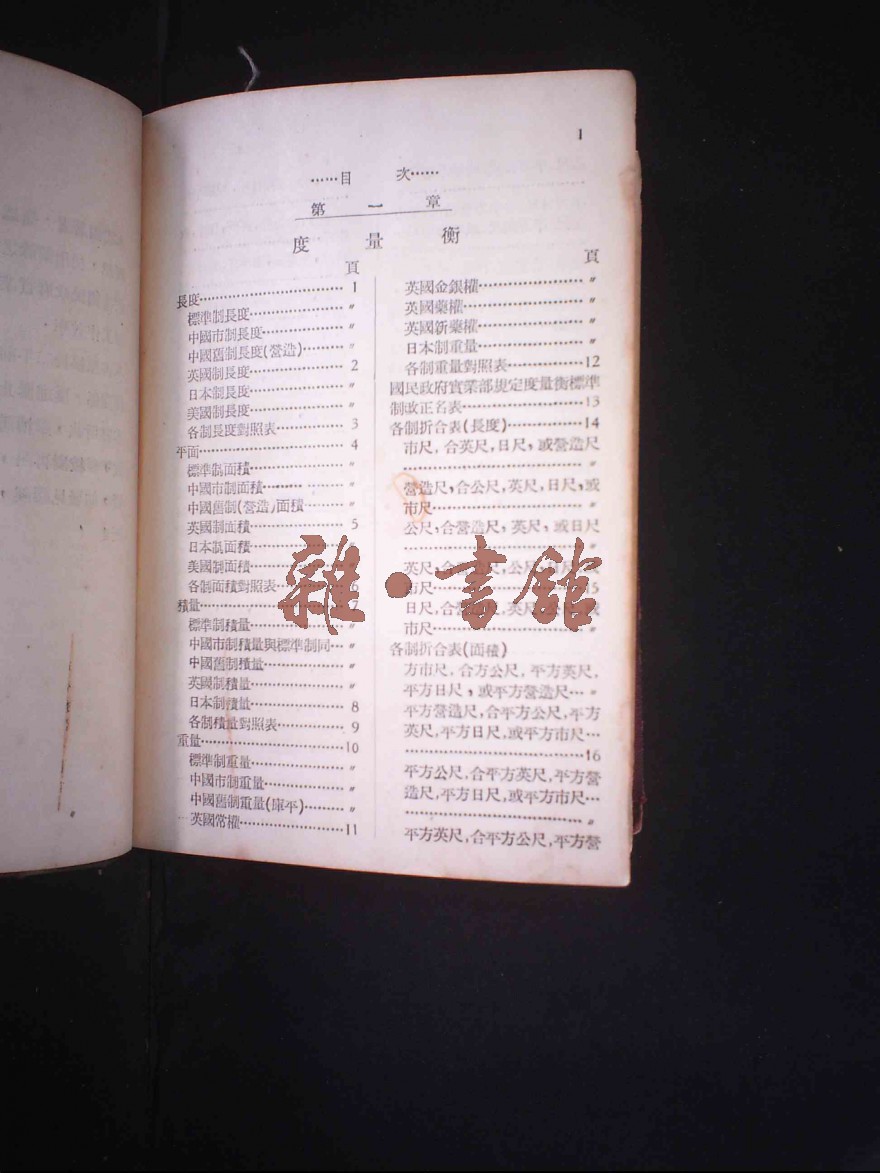 1
……目 次……
第一章
度量衡
頁
長度……………………1
標準制長度……………〃
中國市制長度…………〃
中國舊制長度(營造)……〃
英國制長度……………2
日本制長度……………〃
美國制長度……………〃
各制長度對照表………3
平面……………………4
標準制面積……………〃
中國市制面積…………〃
中國舊制(營造)面積……〃
英國制面積……………5
日本制面積……………〃
美國制面積……………〃
各制面積對照表………6
積量……………………7
標準制積量……………〃
中國市制積量與標準制同…〃
中國舊制積量…………〃
英國制積量……………〃
日本制積量……………8
各制積量對照表………9
重量……………………10
標準制重量……………〃
中國市制重量…………〃
中國舊制重量(庫平)……〃
英國常權………………11
頁
英國金銀權……………〃
英國藥權………………〃
英國新藥權……………〃
日本制重量……………〃
各制重量對照表………12
國民政府實業部規定度量衡標準
制改正名表……………13
各制折合表(長度)………14
市尺,合英尺,日尺,或營造尺
……………………………〃
營造尺,合公尺,英尺,日尺,或
市尺……………………〃
公尺,合營造尺,英尺,或日尺
……………………………〃
英尺,合營造尺,公尺
市尺……………………15
日尺,合營造尺,英尺,公尺,或
市尺……………………〃
各制折合表(面積)
方市尺,合方公尺,平方英尺,
平方日尺,或平方營造尺…〃
平方營造尺,合平方公尺,平方
英尺,平方日尺,或平方市尺…
……………………………16
平方公尺,合平方英尺,平方營
造尺,平方日尺,或平方市尺…
……………………………〃
平方英尺,合平方公尺,平方營
雜·書館